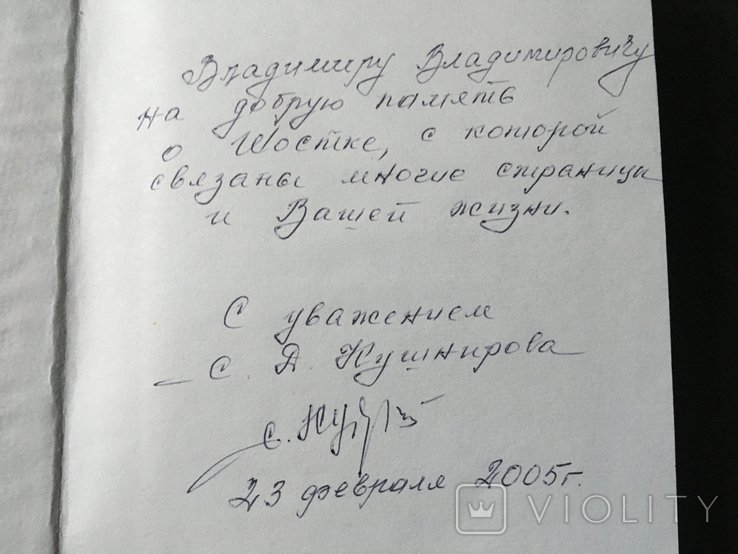 Владимиру Владимировичу
на добрую память
о Шостке, с которой
связаны многие страницы
и Вашей жизни.
С уважением
С. А. Кушнирова
23 февраля 2005г.
VIOLITY